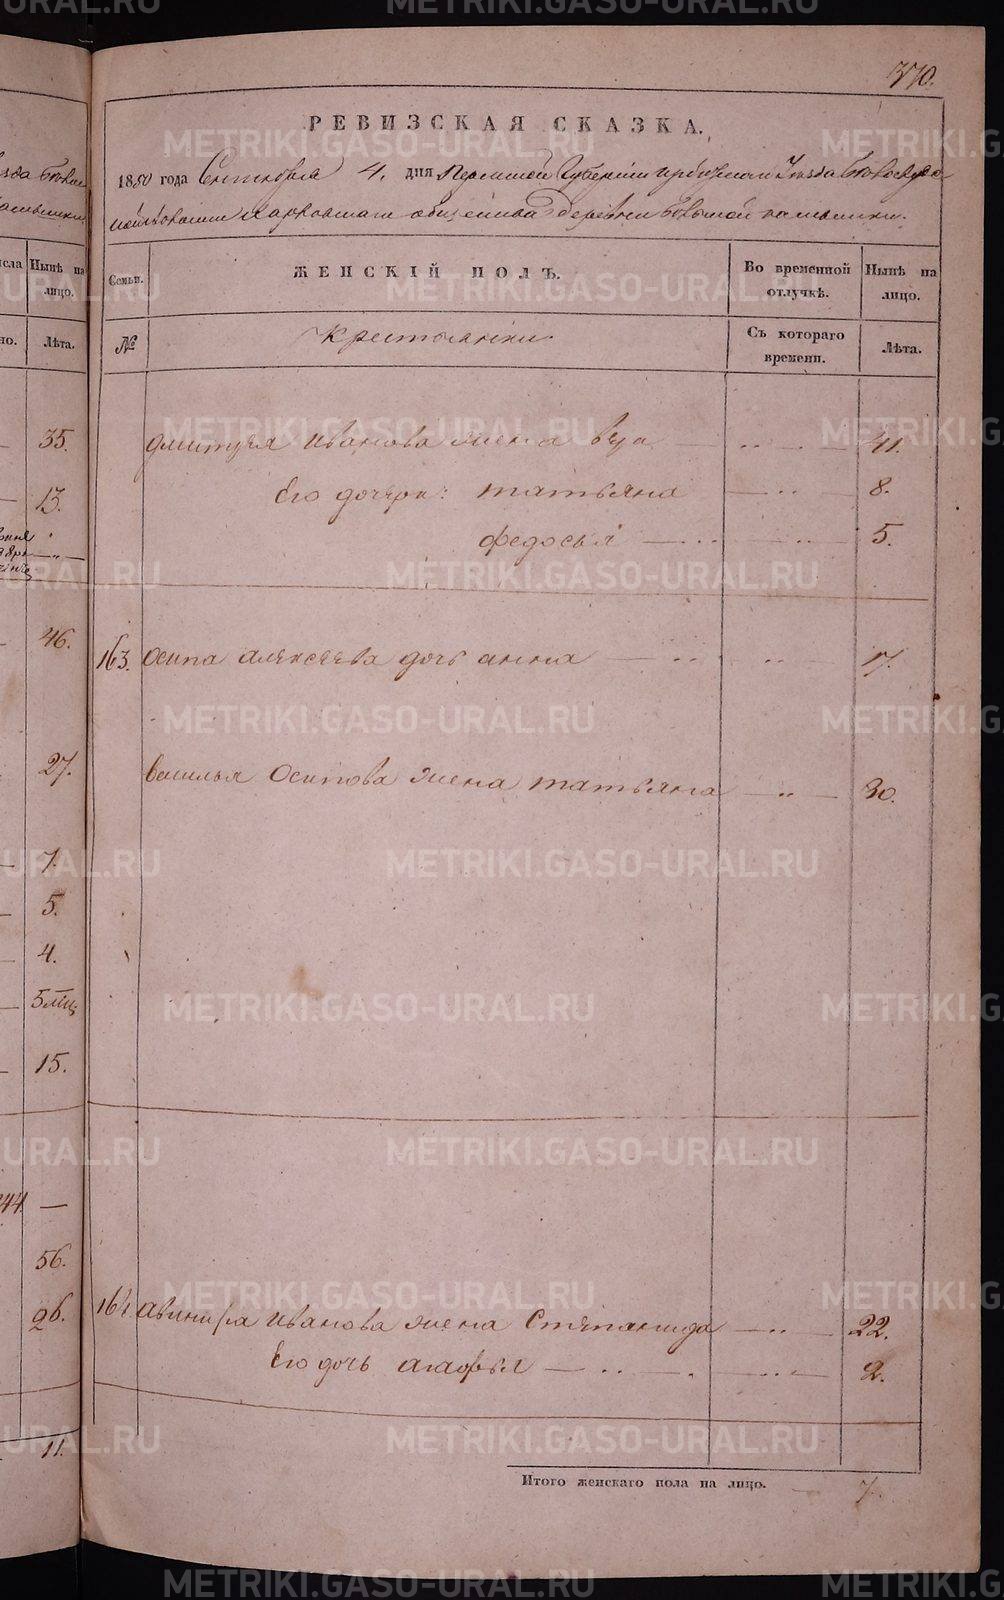 370.
РЕВИЗСКАЯ СКАЗКА.
1850 года Сентября 4. дня Пермской Губернии Уезда
общества деревни
Семьи. ЖЕНСКІЙ ПОЛЪ. Во временной отлучкѣ. Нынѣ на лицо.
№ Крестьянки Съ котораго времени. Лѣта.
Нынѣ на лицо.
Лѣта.
дмитрея иванова жена 41.
Его дочери: татьяна 8.
федосья 5.
163. осипа алексеева дочь анна 17.
василья осипова жена татьяна 30.
164. иванова жена Степанида 22.
Его дочь агафья 2.
Итого женскаго пола на лицо. 7.
35.
13.
46.
27.
7.
5.
4.
5 мц
15.
44 —
56.
26.
11.
METRIKI.GASO-URAL.RU